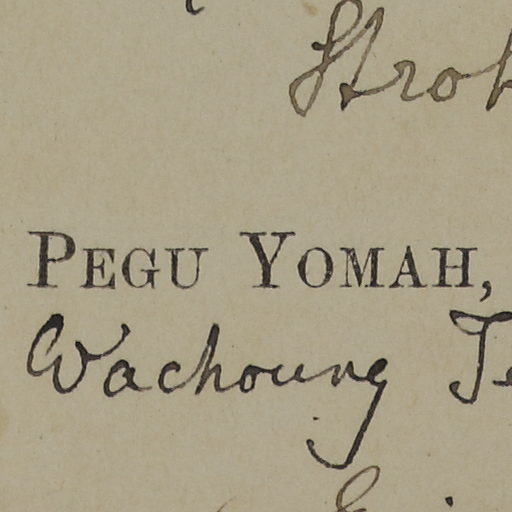 Stro
PEGU YOMAH,
Wachoung Te